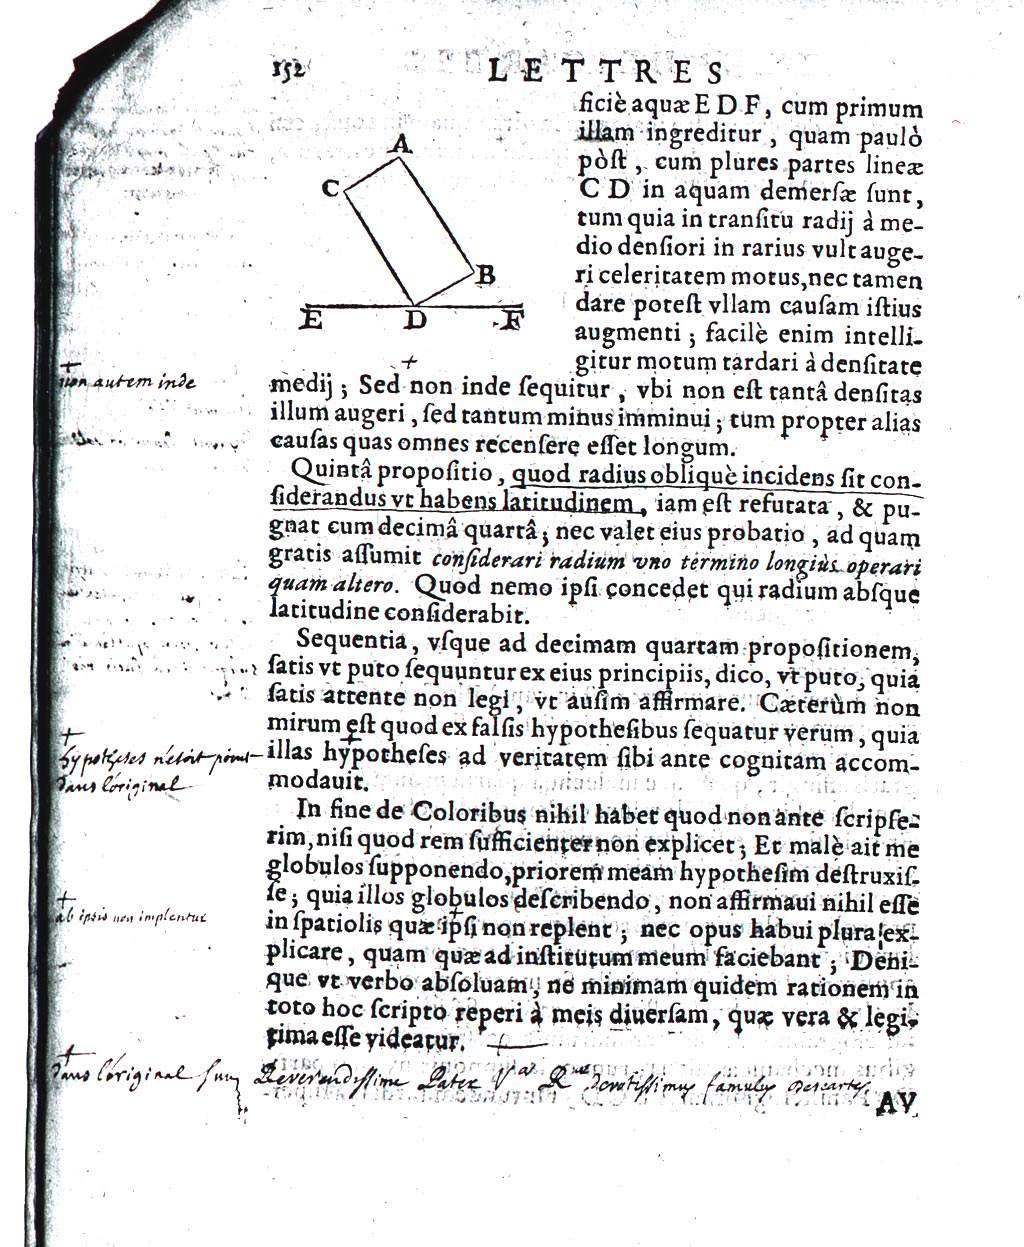 152
LETTRES
A
C
B
E D F
ficiè aquæ E D F, cum primum
illam ingreditur, quam paulò
pòſt, cum plures partes lineæ
C D in aquam demerſæ ſunt,
tum quia in tranſitu radij à me-
dio denſiori in rarius vult auge-
ri celeritatem motus, nec tamen
dare poteſt vllam cauſam iſtius
augmenti ; facilè enim intelli-
gitur motum tardari à denſitate
+
medij ; Sed non inde ſequitur, vbi non eſt tantâ denſitas
illum augeri, ſed tantum minus imminui ; tum propter alias
cauſas quas omnes recenſere eſſet longum.
+
non autem inde
Quintâ propoſitio, quod radius obliquè incidens ſit con-
ſiderandus vt habens latitudinem, iam eſt refutata, & pu-
gnat cum decimâ quartâ ; nec valet eius probatio, ad quam
gratis aſſumit conſiderari radium vno termino longiùs operari
quam altero. Quod nemo ipſi concedet qui radium abſque
latitudine conſiderabit.
Sequentia, vſque ad decimam quartam propoſitionem,
ſatis vt puto ſequuntur ex eius principiis, dico, vt puto, quia
ſatis attente non legi, vt auſim affirmare. Cæterùm non
mirum eſt quod ex falſis hypotheſibus ſequatur verum, quia
+
illas hypotheſes ad veritatem ſibi ante cognitam accom-
modauit.
+
hypotheses n'étoit point
dans l'original
In fine de Coloribus nihil habet quod non ante ſcripſe-
rim, niſi quod rem ſufficienter non explicet ; Et malè ait me
globulos ſupponendo, priorem meam hypotheſim deſtruxiſ-
ſe ; quia illos globulos deſcribendo, non affirmaui nihil eſſe
+
in ſpatiolis quæ ipſi non replent ; nec opus habui plura ex-
plicare, quam quæ ad inſtitutum meum faciebant ; Deni-
que vt verbo abſoluam, ne minimam quidem rationem in
toto hoc ſcripto reperi à meis diuerſam, quæ vera & legi-
tima eſſe videatur. +
+
ab ipsis non implentur
+
dans l'original Reverendissime Pater devotissimus famulus Descartes
AV